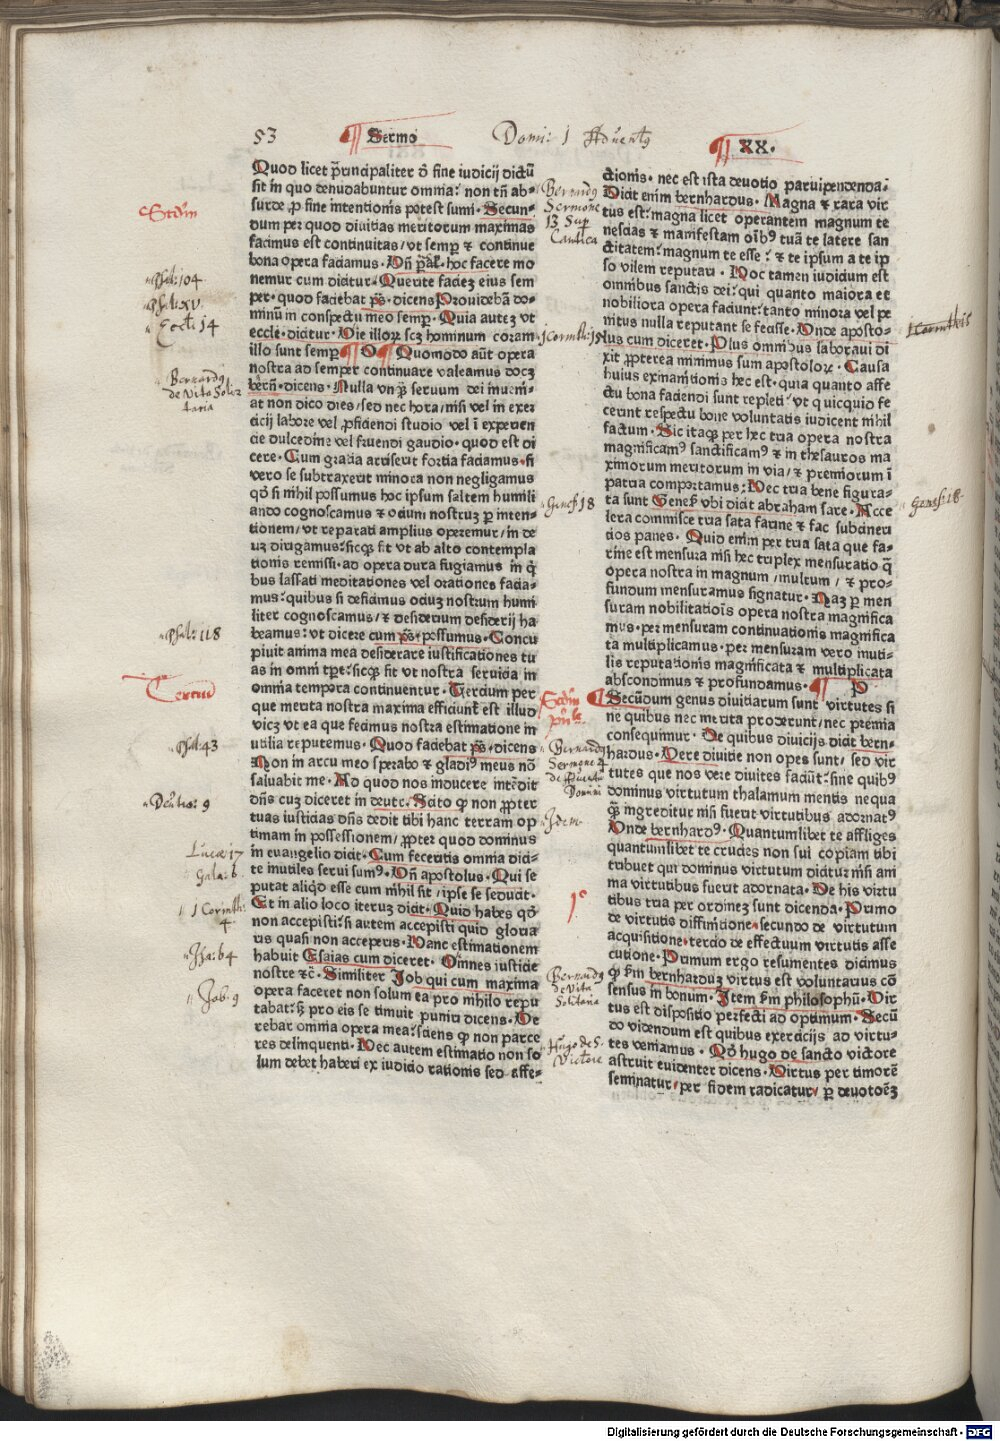 53 Sermo Domi: 1 Aduentꝰ XX.
Quod licet pͥncipaliter ð fine iudicij dictũ
sit in quo denudabuntur omnia: non tñ ab-
surde ꝓ fine intentionis potest sumi. Secun-
dum per quod diuitias meritorum maximas
facimus est continuitas/vt semꝑ ⁊ continue
bona opera faciamus.
hoc facere mo
nemur cum dicitur. Querite faciez eius sem
per. quod faciebat pš. dicens Prouidebã do-
minũ in conspectu meo semꝑ. Quia autez vt
eccle. dicitur. Vie illoꝝ scz hominum coram
illo sunt semꝑ ¶ O ¶ Quomodo aũt opera
nostra ad semper continuare valeamus docz
bern̄. dicens. Nulla vnꝙ̃ seruum dei inueni-
at non dico dies/sed nec hora/nisi vel in exer
cicij labore vel ꝓficiendi studio vel ĩ experien
cie dulcedine vel fruendi gaudio. quod est di
cere. Cum gratia arriserit fortia faciamus. si
vero se subtraxerit minora non negligamus
qð si nihil possumus hoc ipsum saltem humili
ando cognoscamus ⁊ ocium nostruz ꝑ inten-
tionem/vt reparati amplius operemur/in de
uz dirigamus: sicꝗ fit vt ab alto contempla
tionis remissi. ad opera dura fugiamus in q̃
bus lassati meditationes vel orationes facia-
mus: quibus si deficimus ociuz nostrum humi
liter cognoscamus/⁊ desiderium desiderij ha
beamus: vt dicere cum pš. possumus. Concu
piuit anima mea desiderare iustificationes tu
as in omni tꝑe: sicꝗ fit vt nostra seruicia in
omnia tempora continuentur. Tercium per
que merita nostra maxima efficiunt̃ est illud
vicz vt ea que fecimus nostra estimatione in
utilia reputemus. Quod faciebat pš. dicens
Non in arcu meo sperabo ⁊ gladiꝰ meus nõ
saluabit me. Ad quod nos inducere intẽdit
dñs cuz diceret in deute. Scito ꝙ non ꝓpter
tuas iusticias dñs dedit tibi hanc terram op
timam in possessionem/ꝓpter quod dominus
in euangelio dicit. Cum feceritis omnia dici-
te inutiles serui sumꝰ. Vñ apostolus. Qui se
putat aliq̇d esse cum nihil sit/ipse se seducit.
Et in alio loco iteruz dicit. Quid habes qð
non accepisti: si autem accepisti quid gloria
ris quasi non acceperis. Hanc estimationem
habuit Esaias cum diceret. Omnes iusticie
nostre ⁊c̃. Similiter Job qui cum maxima
opera faceret non solum ea pro nihilo repu
tabat: sꝫ pro eis se timuit puniri dicens. Ve
rebar omnia opera mea: sciens ꝙ non parce
res delinquenti. Nec autem estimatio non so
lum debet haberi ex iudicio rationis sed affe-
ctionis. nec est ista deuotio paruipendenda.
Dicit enim bernhardus. Magna ⁊ rara vir
tus est: magna licet operantem magnum te
nescias ⁊ manifestam oĩbꝰ tuã te latere san
ctitatem: magnum te esse: ⁊ te ipsum a te ip
so vilem reputari. Hoc tamen iudicium est
omnibus sanctis dei: qui quanto maiora et
nobiliora opera faciunt: tanto minora vel pe
nitus nulla reputant se fecisse. Vnde aposto-
lus cum diceret. Plus omnibus laboraui di
xit ꝓpterea minimus sum apostoloꝝ. Causa
huius exinanitionis hec est. quia quanto affe
ctu bona faciendi sunt repleti: vt quicquid fe
cerint respectu bone voluntatis iudicent nihil
factum. Sic itaꝗ per hec tria opera nostra
magnificamꝰ sanctificamꝰ ⁊ in thesauros ma
ximorum meritorum in via/⁊ premiorum ĩ
patria comportamus: Nec tria bene figura-
ta sunt Geneš vbi dicit abraham sare. Acce
lera commisce tria sata farine ⁊ fac subcineri
cios panes. Quid enim per tria sata que fa-
rine est mensura nisi hec triplex mensuratio q̃
opera nostra in magnum/multum/⁊ pro-
fundum mensuramus signatur. Naz ꝑ men
suram nobilitatiõis opera nostra magnifica
mus. per mensuram continuationis magnifica
ta multiplicamus. per mensuram vero inuti-
lis reputationis magnificata ⁊ multiplicata
abscondimus ⁊ profundamus. ¶ P
¶ Secũdum genus diuitiarum sunt virtutes si
ne quibus nec merita proderunt/nec premia
consequimur. De quibus diuicijs dicit bern-
hardus. Vere diuitie non opes sunt/sed vir
tutes que nos vere diuites faciũt: sine quibꝰ
dominus virtutum thalamum mentis nequa
ꝙ̃ ingreditur nisi fuerit virtutibus adornatꝰ
Vnde bernhardꝰ. Quantumlibet te affliges
quantumlibet te crucies non sui copiam tibi
tribuet qui dominus virtutum dicitur nisi ani
ma virtutibus fuerit adornata. De his virtu
tibus tria per ordinez sunt dicenda. Primo
de virtutis diffinitione. secundo de virtutum
acquisitione. tercio de effectuum virtutis asse
cutione. Primum ergo resumentes dicimus
ꝙ ßm bernharduz virtus est voluntarius cõ
sensus in bonum. Item ßm philosophũ. Vir
tus est dispositio perfecti ad optimum. Secũ
do videndum est quibus exercicijs ad virtu-
tes veniamus. Qð hugo de sancto victore
astruit euidenter dicens. Virtus per timorẽ
seminatur/per fidem radicatur/ꝑ deuotõez
Scdm
Psal: 104
Psal: XV.
Eccli 14
Bernardꝰ
de Vita Soli-
taria
Psal: 118
Tertiũ
Psal: 43
Deutro: 9
Lucæ 17
Gala: 6
1 Corinth:
4.
Isa: 64
Job. 9
Bernardꝰ
Sermone
13 Sup
Cantica
1 Corinth: 15
1 Corinth 15
Genes: 18
Genes: 18.
Scdm
Bernardꝰ
Sermone 4
de Aduentu
Domini
Idem.
Bernardꝰ
de Vita
Solitaria
Hugo de S.
Victore
Digitalisierung gefördert durch die Deutsche Forschungsgemeinschaft - DFG